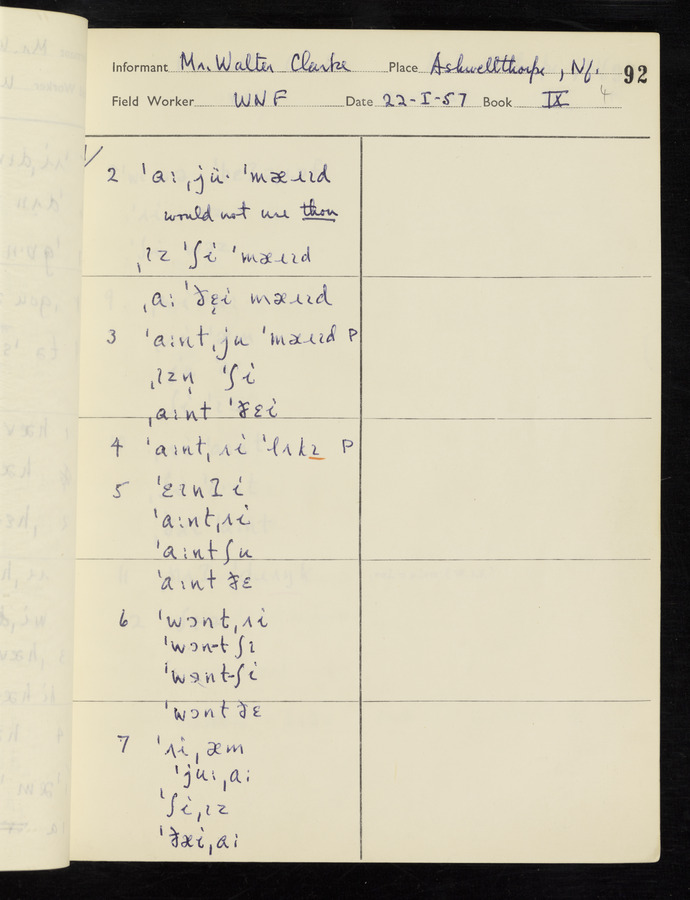 Informant Mr. Walter Clarke Place Ashwellthorpe, Nf. 92
Field Worker WNF Date 22-I-57 Book IX 4
2 ˈaː ˌjüˑ ˈmæɹɪd
would not use thou
ˌɪz ˈʃi ˈmæɹɪd
ˌaː ˈðɛi mæɹɪd
3 ˈaːnt ˌju ˈmæɹɪd P
ˌɪzn̩ ˈʃi
ˌaːnt ˈðɛi
4 ˈaːnt ˌɹi P
5
ˈaːnt ˌɹi
ˈaːnt ʃu
ˈaːnt ðɛ
6 ˈwɔnt ˌɹi
ˈwɔnt ʃɪ
ˈwɔnt ʃi
ˈwɔnt ðɛ
7 ˈɹi ˌæm
ˈjuː ˌaː
ˈʃi ˌɪz
ˈðæi ˌaː